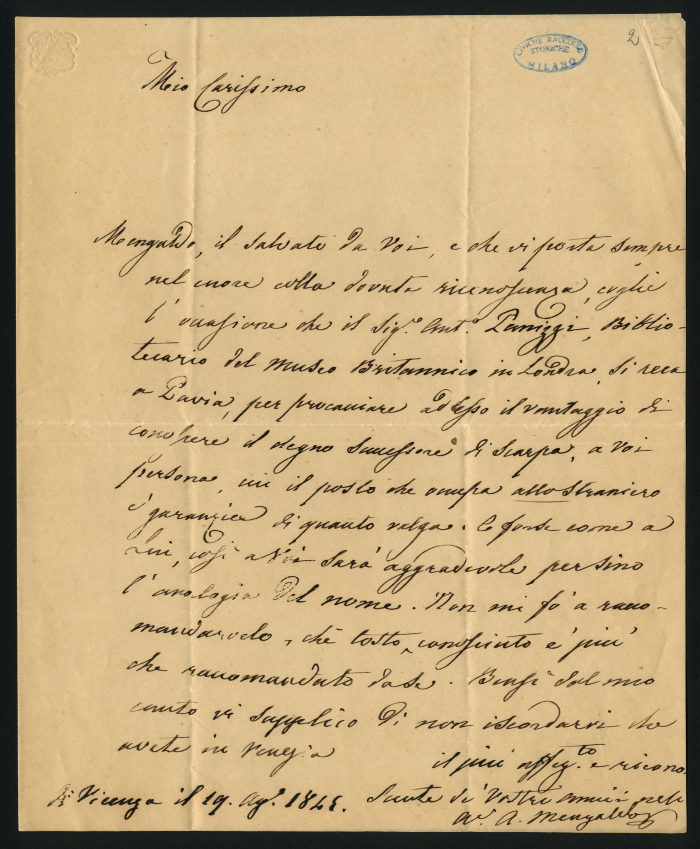 2
CIVICHE RACCOLTE
STORICHE
MILANO
Mio Carissimo
Mengaldo, il salvato da Voi, e che vi porta sempre
nel cuore colla dovuta riconoscenza, coglie
l'occasione che il Sig.r Ant.o Panizzi, Biblio-
tecario del Museo Britannico in Londra, si reca
a Pavia, per procacciare ad esso il vantaggio di
conoscere il degno successore di Scarpa, a Voi
persona, cui il posto che occupa allo straniero
è garanzia di quanto valga. E forse come a
Lui, così a Voi sarà aggradevole persino
l'analogia del nome. Non mi fò a racco-
mandarvelo, chè tosto conosciuto è più
che raccomandato da se. Bensì dal mio
canto vi supplico di non iscordarvi che
avete in Venezia
il più affez.to e ricono-
Di Vicenza il 19. Ag.o 1845.
scente de' Vostri amici nell'
Av. A. Mengaldo